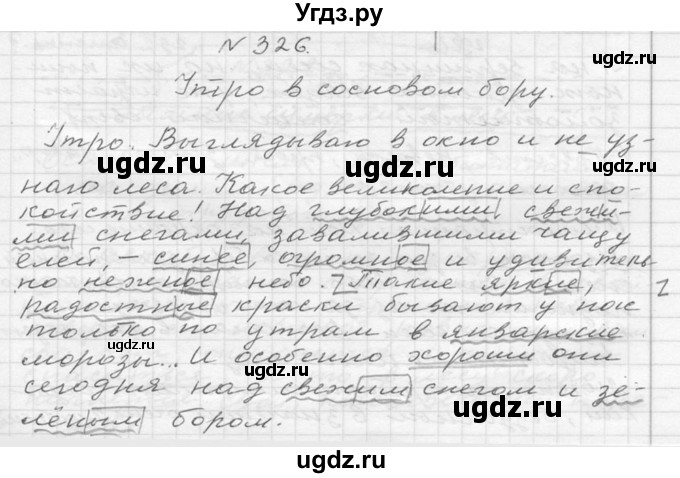 Угдз.ру
N 326.
Утро в сосновом бору.
Утро. Выглядываю в окно и не уз-
наю леса. Какое великолепие и спо-
койствие! Над глубокими, свежи-
ми снегами, завалившими чащу
елей, – синее, огромное и удивитель-
но нежное небо. Такие яркие,
радостные краски бывают у нас
только по утрам в январские
морозы... И особенно хороши они
сегодня над свежим снегом и зе-
лёным бором.
ugdz.ru
ugdz.ru
ugdz.ru
ugdz.ru
ugdz.ru
ugdz.ru
ugdz.ru
ugdz.ru
ugdz.ru
ugdz.ru
ugdz.ru